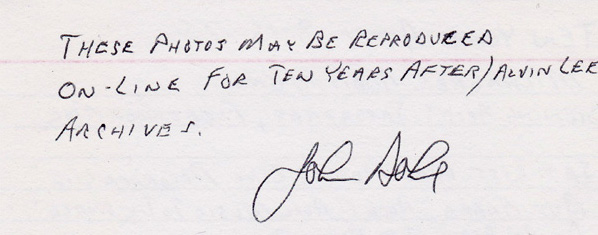 THESE PHOTOS MAY BE REPRODUCED
ON-LINE FOR TEN YEARS AFTER/ALVIN LEE
ARCHIVES.
John